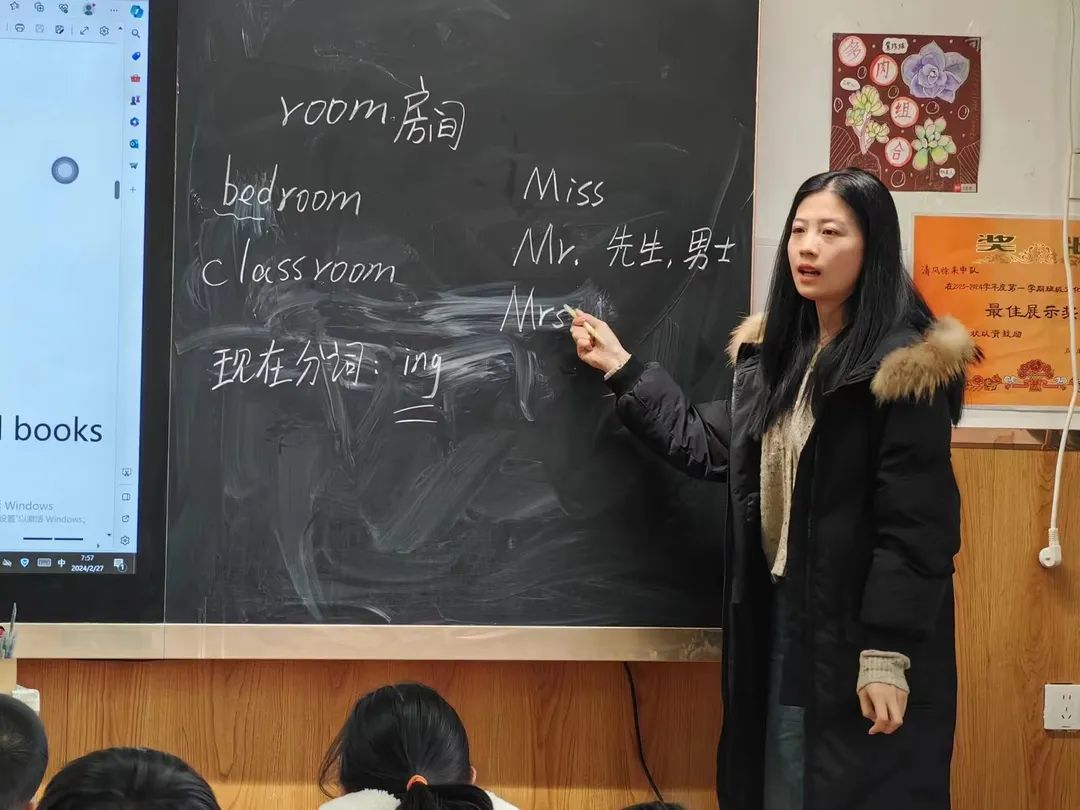 room 房间
bedroom
classroom
现在分词: ing
Miss
Mr. 先生, 男士
Mrs
books
Windows
Windows。
中
7:57
2024/2/27
多
肉
组
合
奖
清风徐来中队
在2023-2024学年度第一学期班级文化
最佳展示奖
状以资鼓励